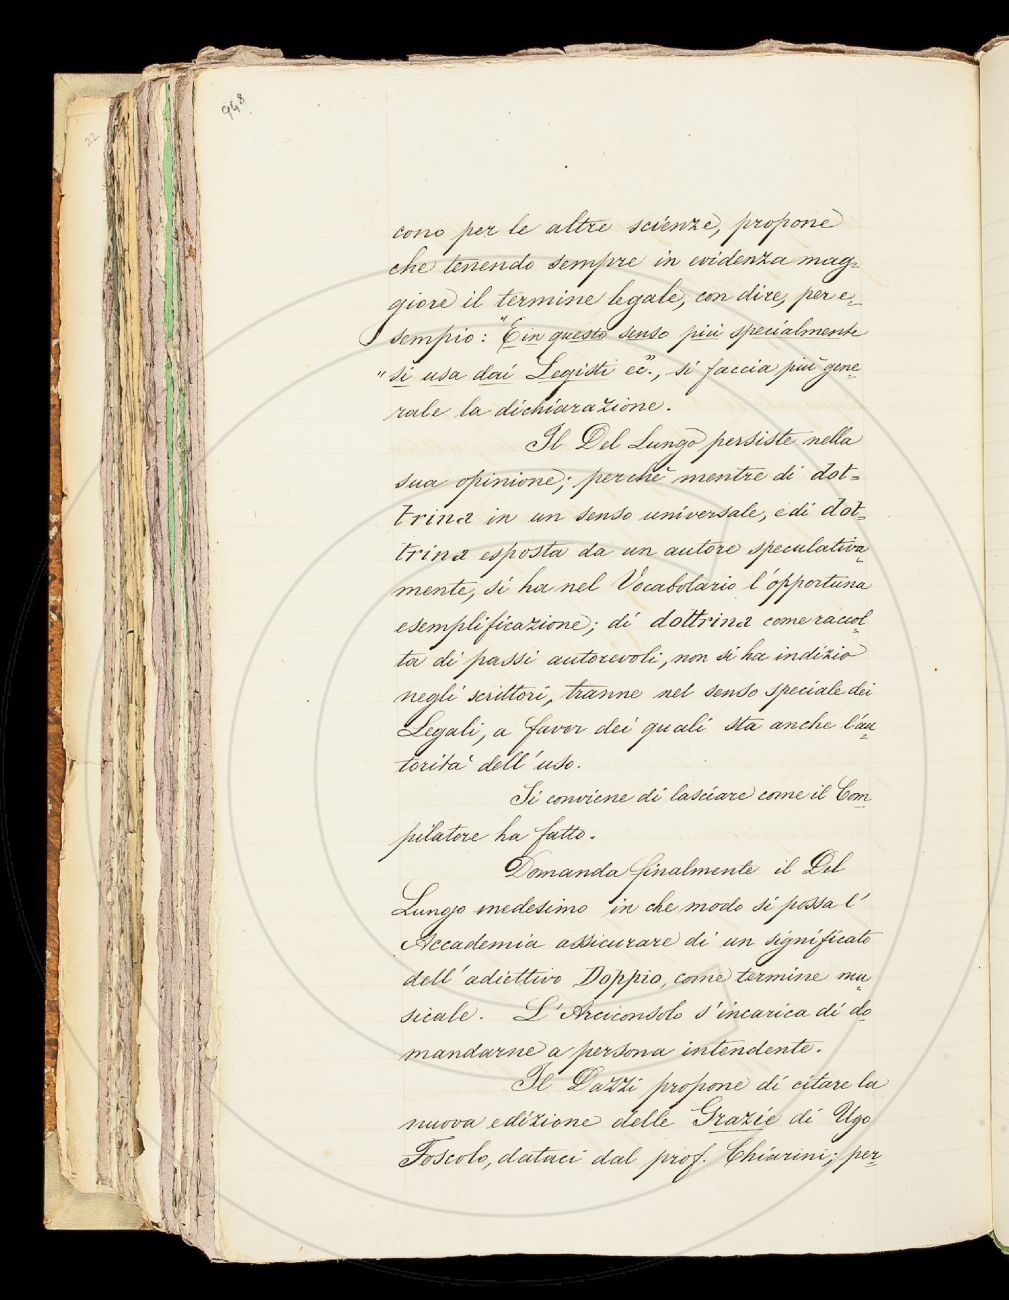 948.
22
cono per le altre scienze, propone
che tenendo sempre in evidenza mag=
giore il termine legale, con dire, per e=
sempio: "E in questo senso più specialmente
"si usa dai Legisti ec.", si faccia più gene=
rale la dichiarazione.
Il Del Lungo persiste nella
sua opinione; perchè mentre di dot=
trina in un senso universale, e di dot=
trina esposta da un autore speculativa=
mente, si ha nel Vocabolario l'opportuna
esemplificazione; di dottrina come raccol=
ta di passi autorevoli, non si ha indizio
negli scrittori, tranne nel senso speciale dei
Legali, a favor dei quali sta anche l'au=
torità dell'uso.
Si conviene di lasciare come il Com=
pilatore ha fatto.
Domanda finalmente il Del
Lungo medesimo in che modo si possa l'
Accademia assicurare di un significato
dell'adiettivo Doppio, come termine mu=
sicale. L'Arciconsolo s'incarica di do=
mandarne a persona intendente.
Il Dazzi propone di citare la
nuova edizione delle Grazie di Ugo
Foscolo, dataci dal prof. Chiarini; per=